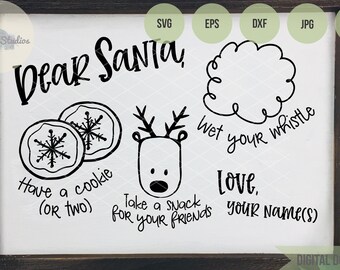 SVG EPS DXF JPG
Studios
Dear Santa,
Have a cookie
(or two)
Take a snack
for your friends
Wet your whistle
Love,
your name(s)
DIGITAL